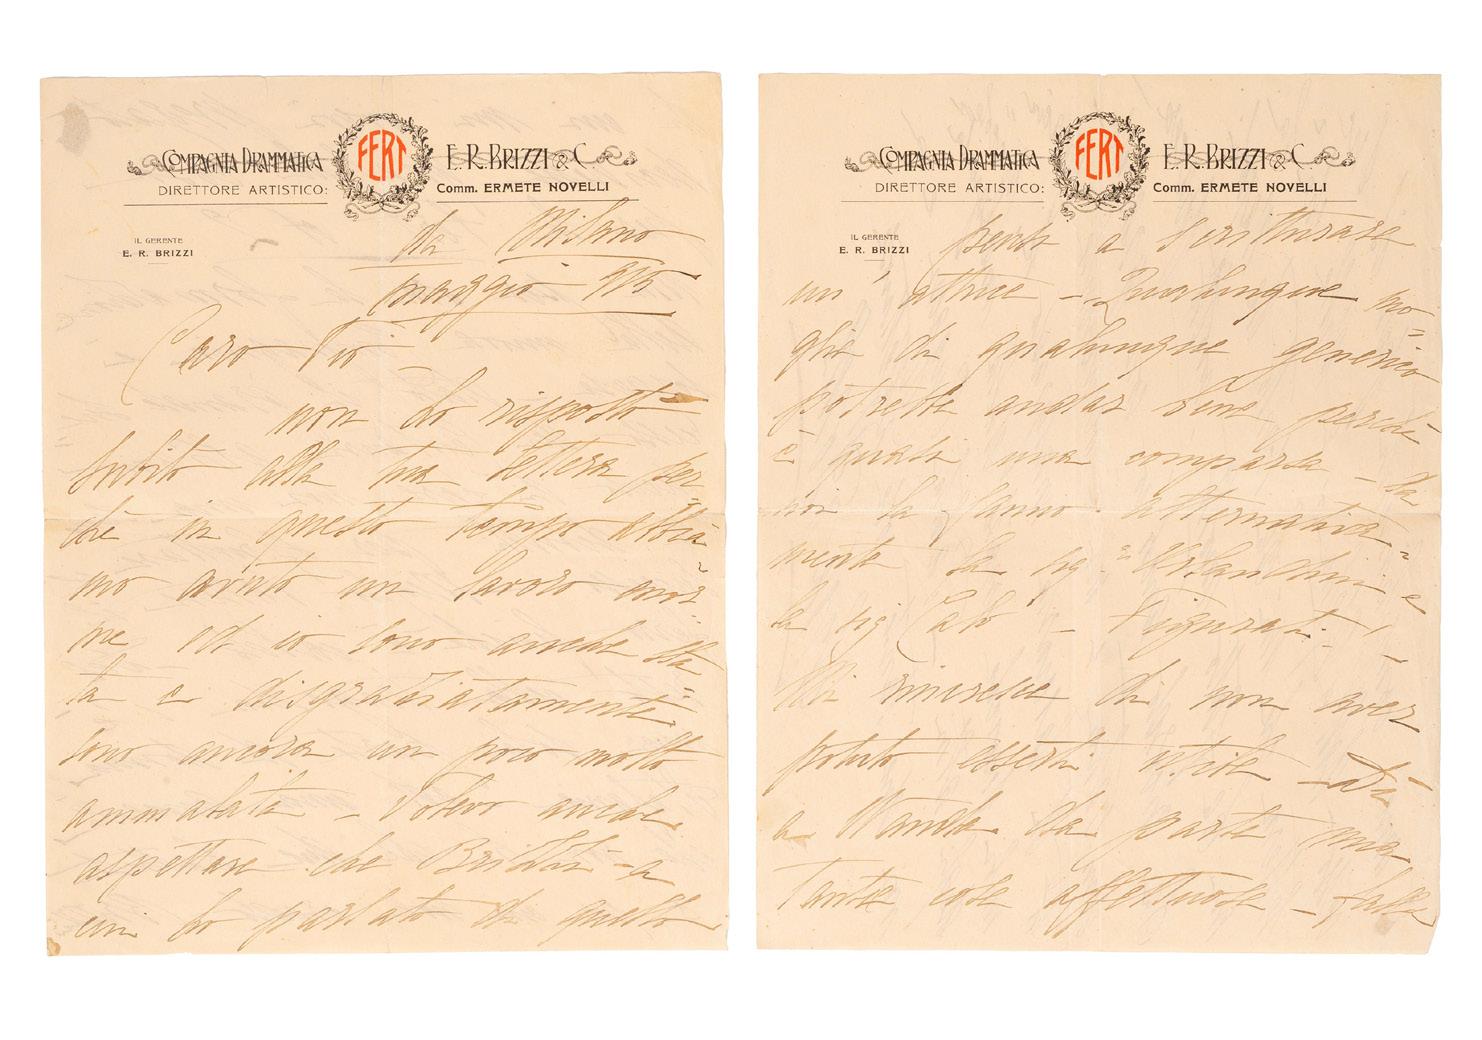 COMPAGNIA DRAMMATICA FERT E. R. BRIZZI & C.
DIRETTORE ARTISTICO: Comm. ERMETE NOVELLI
IL GERENTE
E. R. BRIZZI
da Milano
maggio 915
Caro Pio
non ho risposto
subito alla tua lettera per=
chè in questo tempo abbia=
mo avuto un lavoro enor=
me ed io sono anche sta=
ta e disgraziatamente
sono ancora un poco molto
ammalata – Volevo anche
aspettare che Brizzi – a
cui ho parlato di quello
COMPAGNIA DRAMMATICA FERT E. R. BRIZZI & C.
DIRETTORE ARTISTICO: Comm. ERMETE NOVELLI
IL GERENTE
E. R. BRIZZI
pensi a scritturare
un' attrice – Qualunque mo=
glie di qualunque generico
potrebbe andar bene perchè
è quasi una comparsa – da
noi la fanno alternativa=
mente la sig.ra e
la sig – Figurati! –
Mi rincresce di non aver
potuto esserti utile – Di'
a Wanda da parte mia
tante cose affettuose –